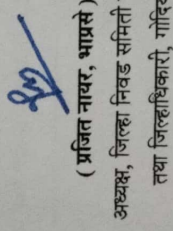 ( प्रजित नायर, भाप्रसे )
अध्यक्ष, जिल्हा निवड समिती
तथा जिल्हाधिकारी, गोंदि